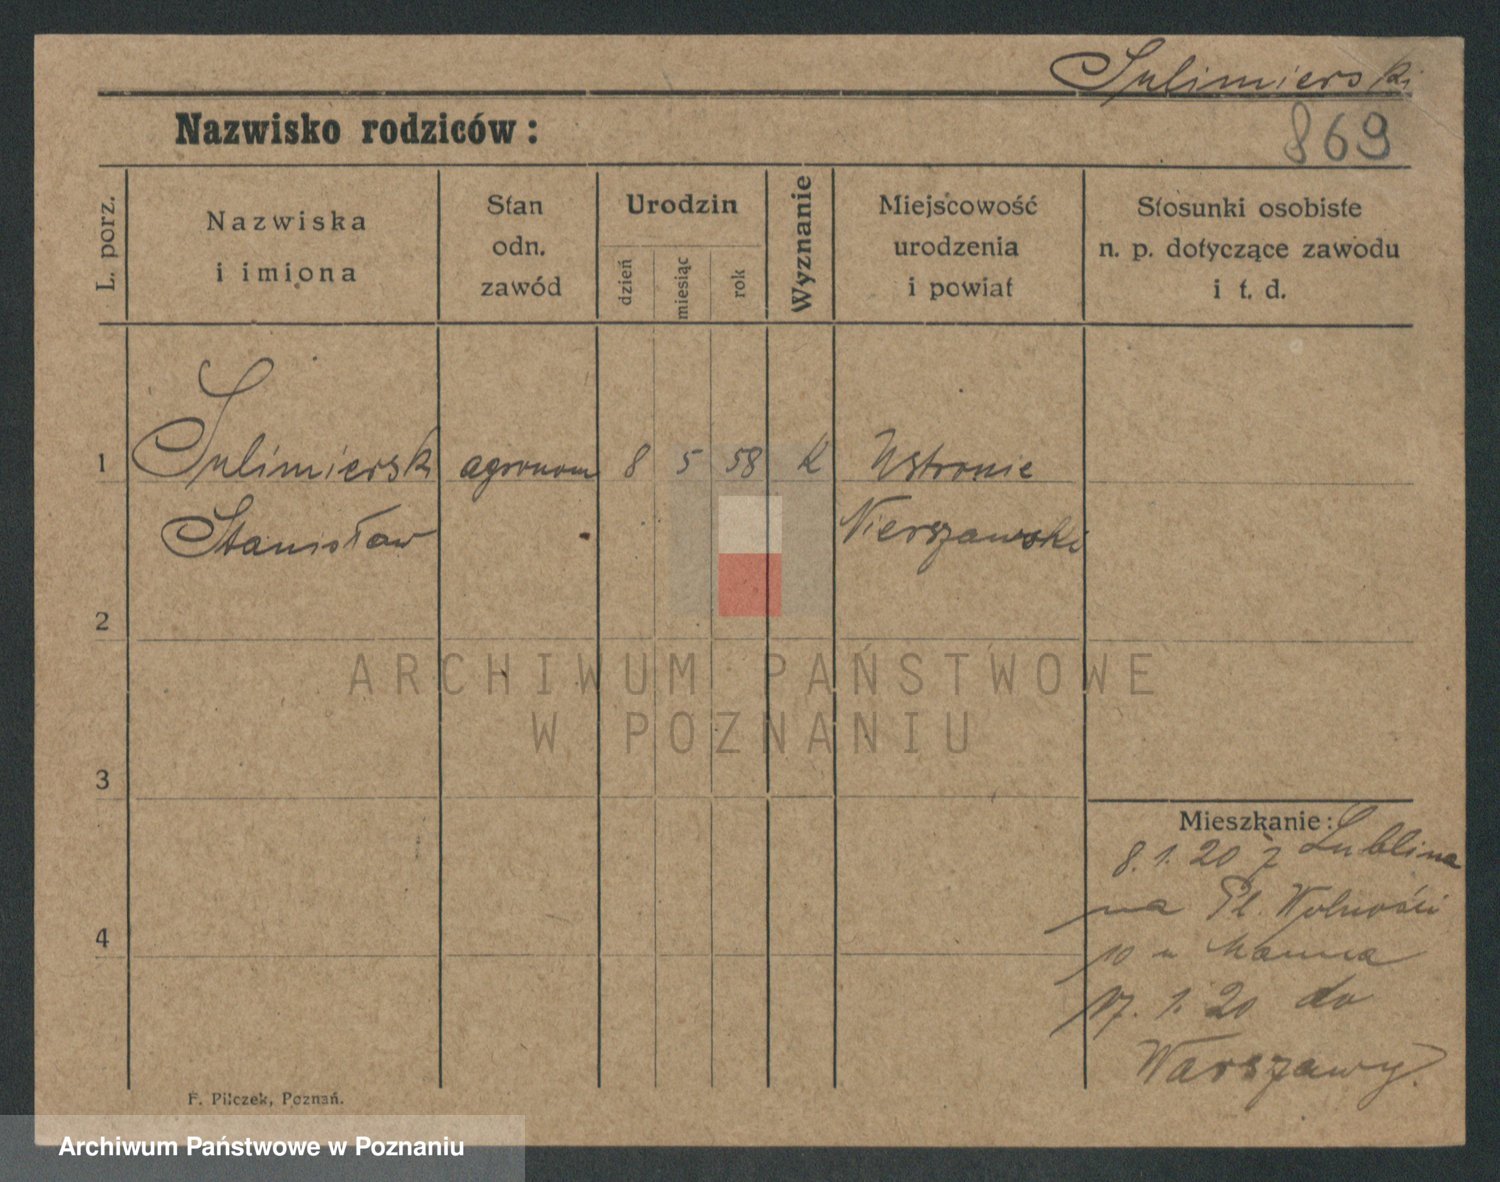 Sulimierski
Nazwisko rodziców:
869
L. porz.
Nazwiska
i imiona
Stan
odn.
zawód
Urodzin
dzień
miesiąc
rok
Wyznanie
Miejscowość
urodzenia
i powiat
Stosunki osobiste
n. p. dotyczące zawodu
i t. d.
1 Sulimierski agronom 8 5 58 K Ustronie
Stanisław Nierszawski
2
ARCHIWUM PAŃSTWOWE
W POZNANIU
3
Mieszkanie:
8. 1. 20 z Lublina
na Pl. Wolności
4
10 u
17. 1. 20 do
Warszawy.
F. Pilczek, Poznań.
Archiwum Państwowe w Poznaniu